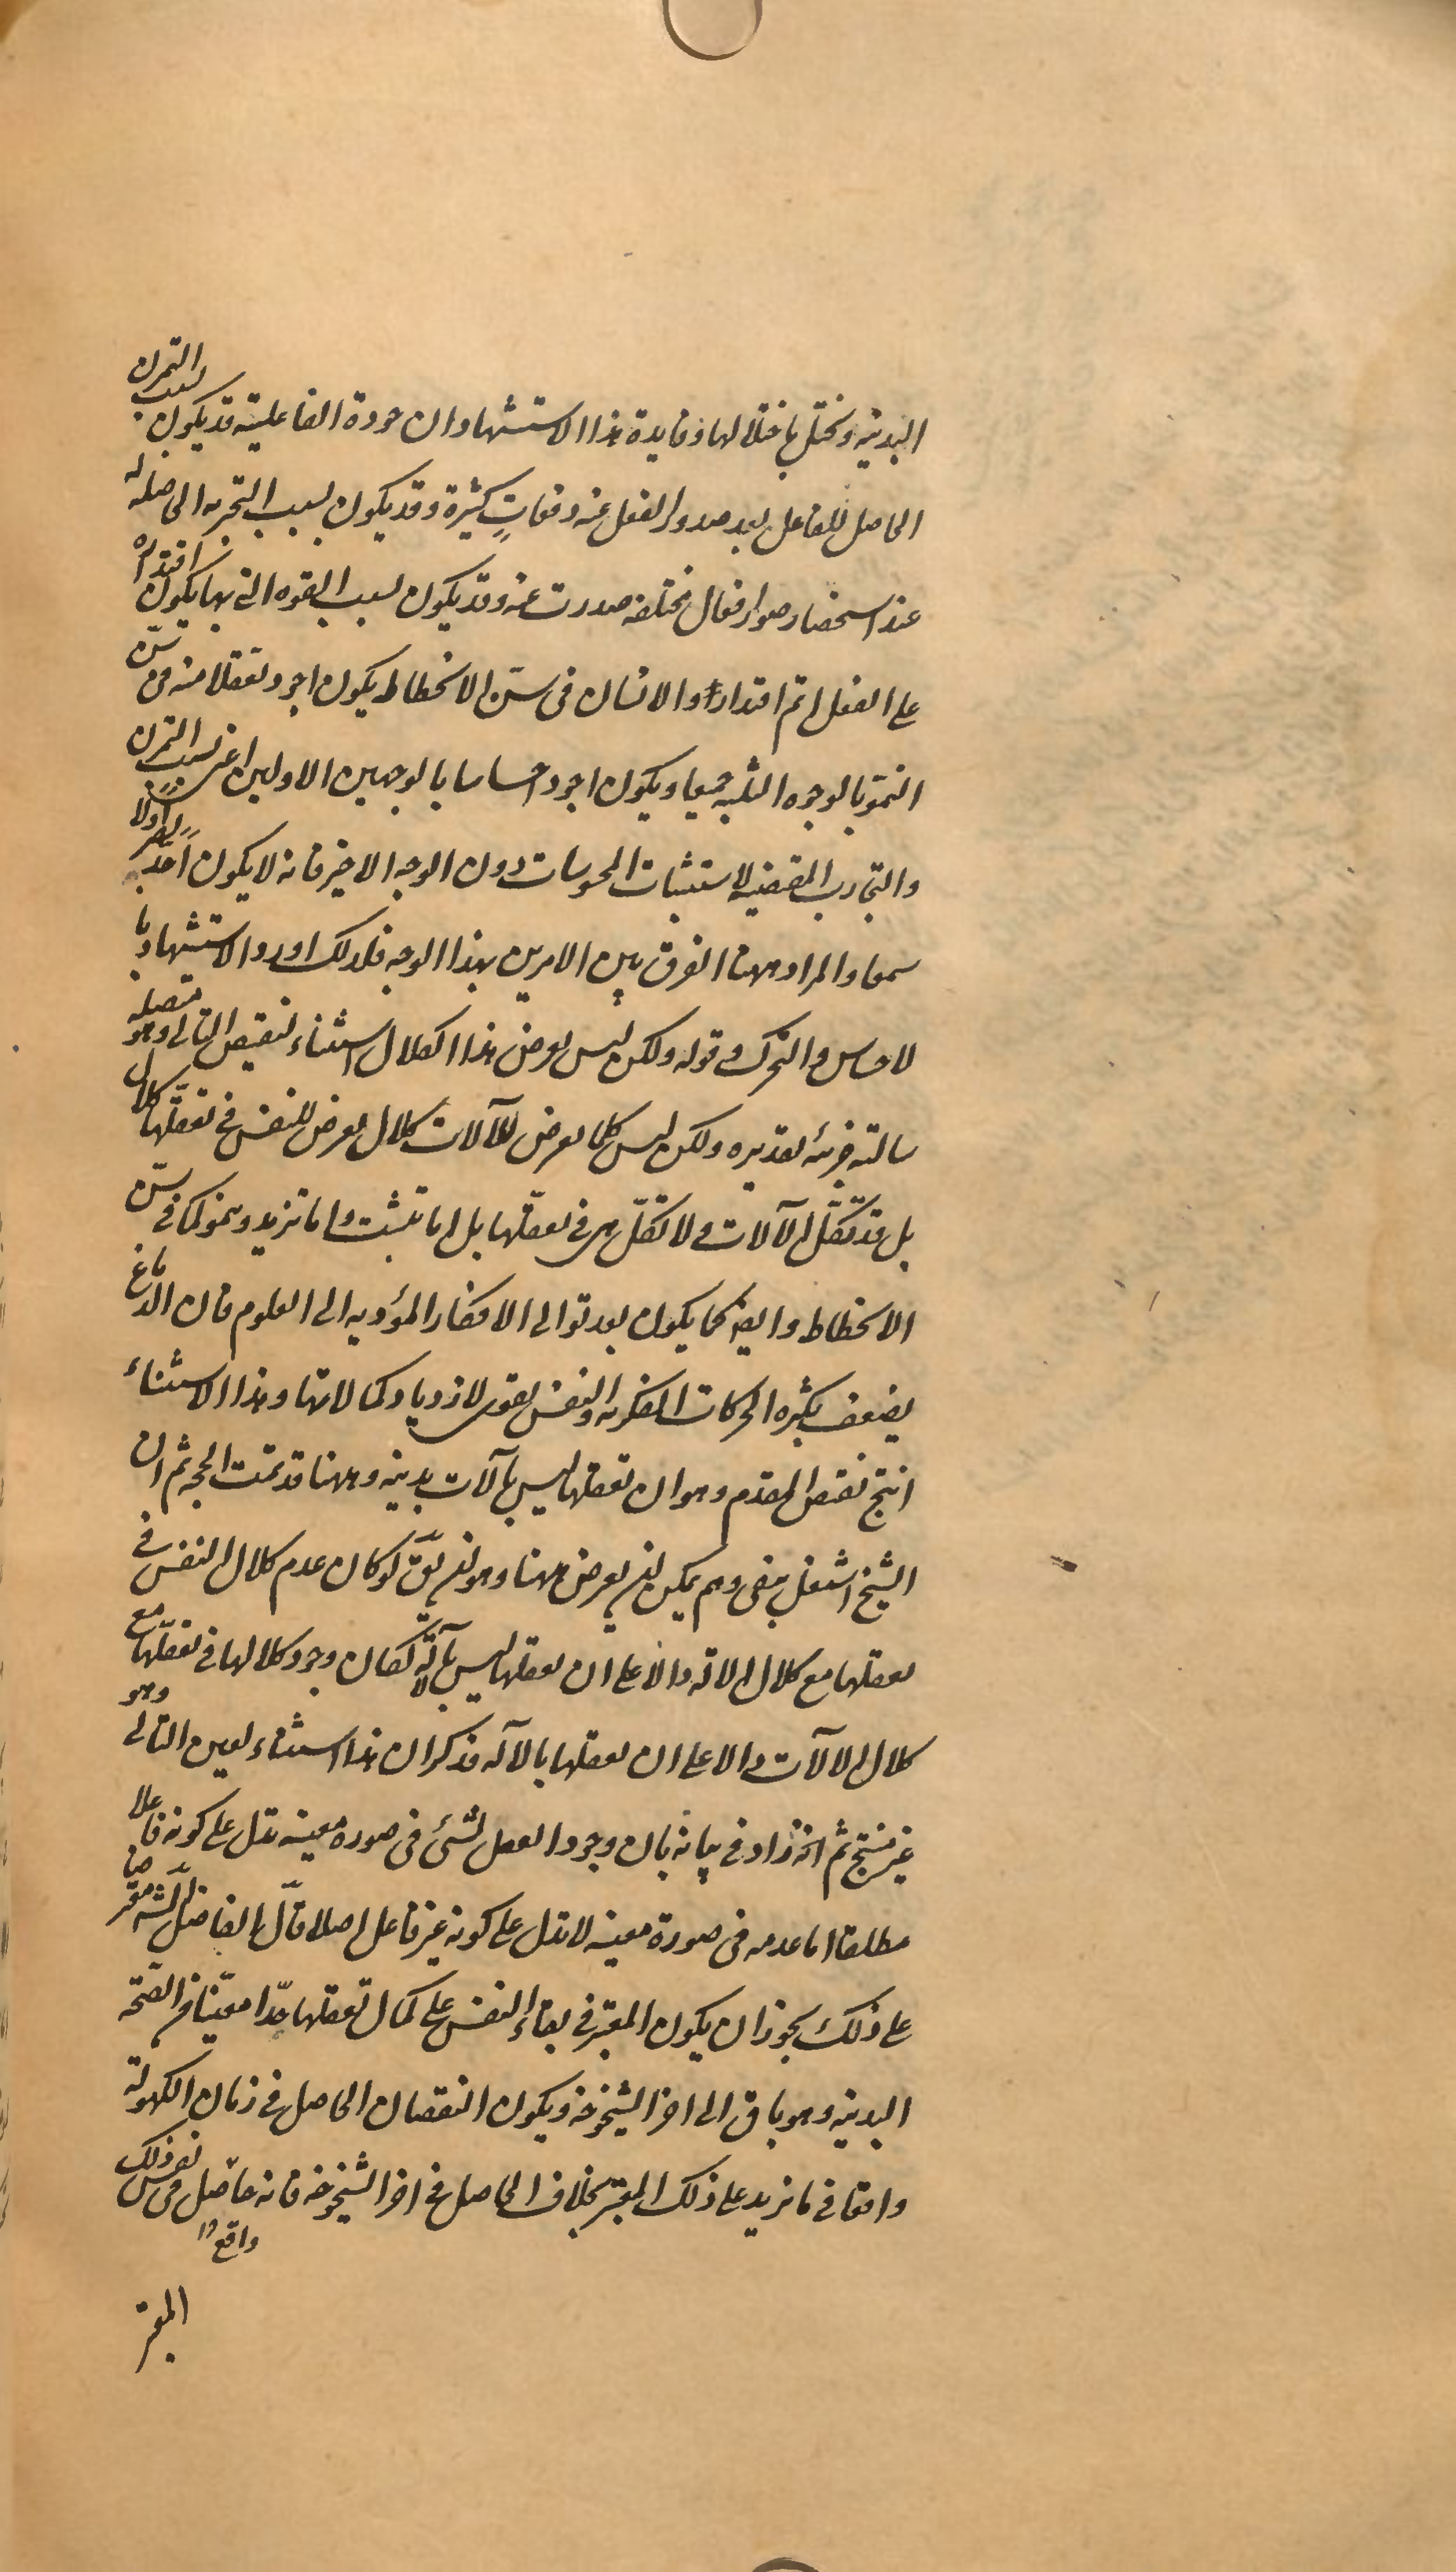 البدنية وتختل باختلالها وفايدة هذا الاستشهاد ان جودة الفاعلية قد يكون بسبب التمرن
الحاصل للفاعل بعد صدور الفعل عنه دفعاتٍ كثيرة وقد يكون بسبب التجربه الحاصلة له
عند استحضار صور افعال مختلفه صدرت عنه وقد يكون بسبب القوه التى بها يكون اقتداره
على الفعل اتم اقتدارا والانسان فى سنّ الانحطاط يكون اجود تعقلا منه فى سنّ
النموّ بالوجوه الثلثه جميعا ويكون اجود احساسا بالوجهين الاولين اعنى بسبب التمرن
والتجارب المقتضيه لاستثبات المحسوسات دون الوجه الاخير فانه لا يكون احدّ بصرا ولا
سمعا والمراد ههنا الفرق بين الامرين بهذا الوجه فلذلك اورد الاستشهاد با
لاحساس والتحرك و قوله ولكن ليس يعرض هذا الكلال استثناء لنقيض التالى وهو متصلة
سالبة جزئية تقديره ولكن ليس كلما يعرض للآلات كلال يعرض للنفس فى تعقلها كلال
بل قد تكلّ الآلات و لا تكلّ هى فى تعقلها بل اما تثبت و اما تزيد وتنمو كما فى سنّ
الانحطاط وايضا كما يكون بعد توالى الافكار المؤديه الى العلوم فان الدماغ
يضعف بكثره الحركات الفكريه والنفس تقوى لازدياد كمالاتها وهذا الاستثناء
انتج نقيض المقدم وهو ان تعقلها ليس بآلات بدنية وههنا قد تمّت الحجه ثم ان
الشيخ اشتغل بنفى وهم يمكن ان يعرض ههنا وهو ان يقّ لو كان عدم كلال النفس فى
تعقلها مع كلال الاله دالا على ان تعقلها ليس بآلة لكان وجود كلالها فى تعقلها مع
كلال الآلات دالا على ان تعقلها بالآله فذكر ان هذا استثناء لعين التالى وهو
غير منتج ثم انه زاد فى بيانه بان وجود الفعل لشئ فى صوره معينه تدل على كونه فاعلا
مطلقا اما عدمه فى صورة معينه لا تدل على كونه غير فاعل اصلا قال الفاضل الشه معترضا
على ذلك يجوز ان يكون المعتبر فى بقاء النفس على كمال تعقلها حدّا معيّنا من الصّحه
البدنيه وهو باق الى اخر الشيخوخه ويكون النقصان الحاصل فى زمان الكهولة
واقعا فى ما يزيد على ذلك المعتبر بخلاف الحاصل فى اخر الشيخوخه فانه حاصل فى نفس ذلك
واقع ١٢
المعتبر